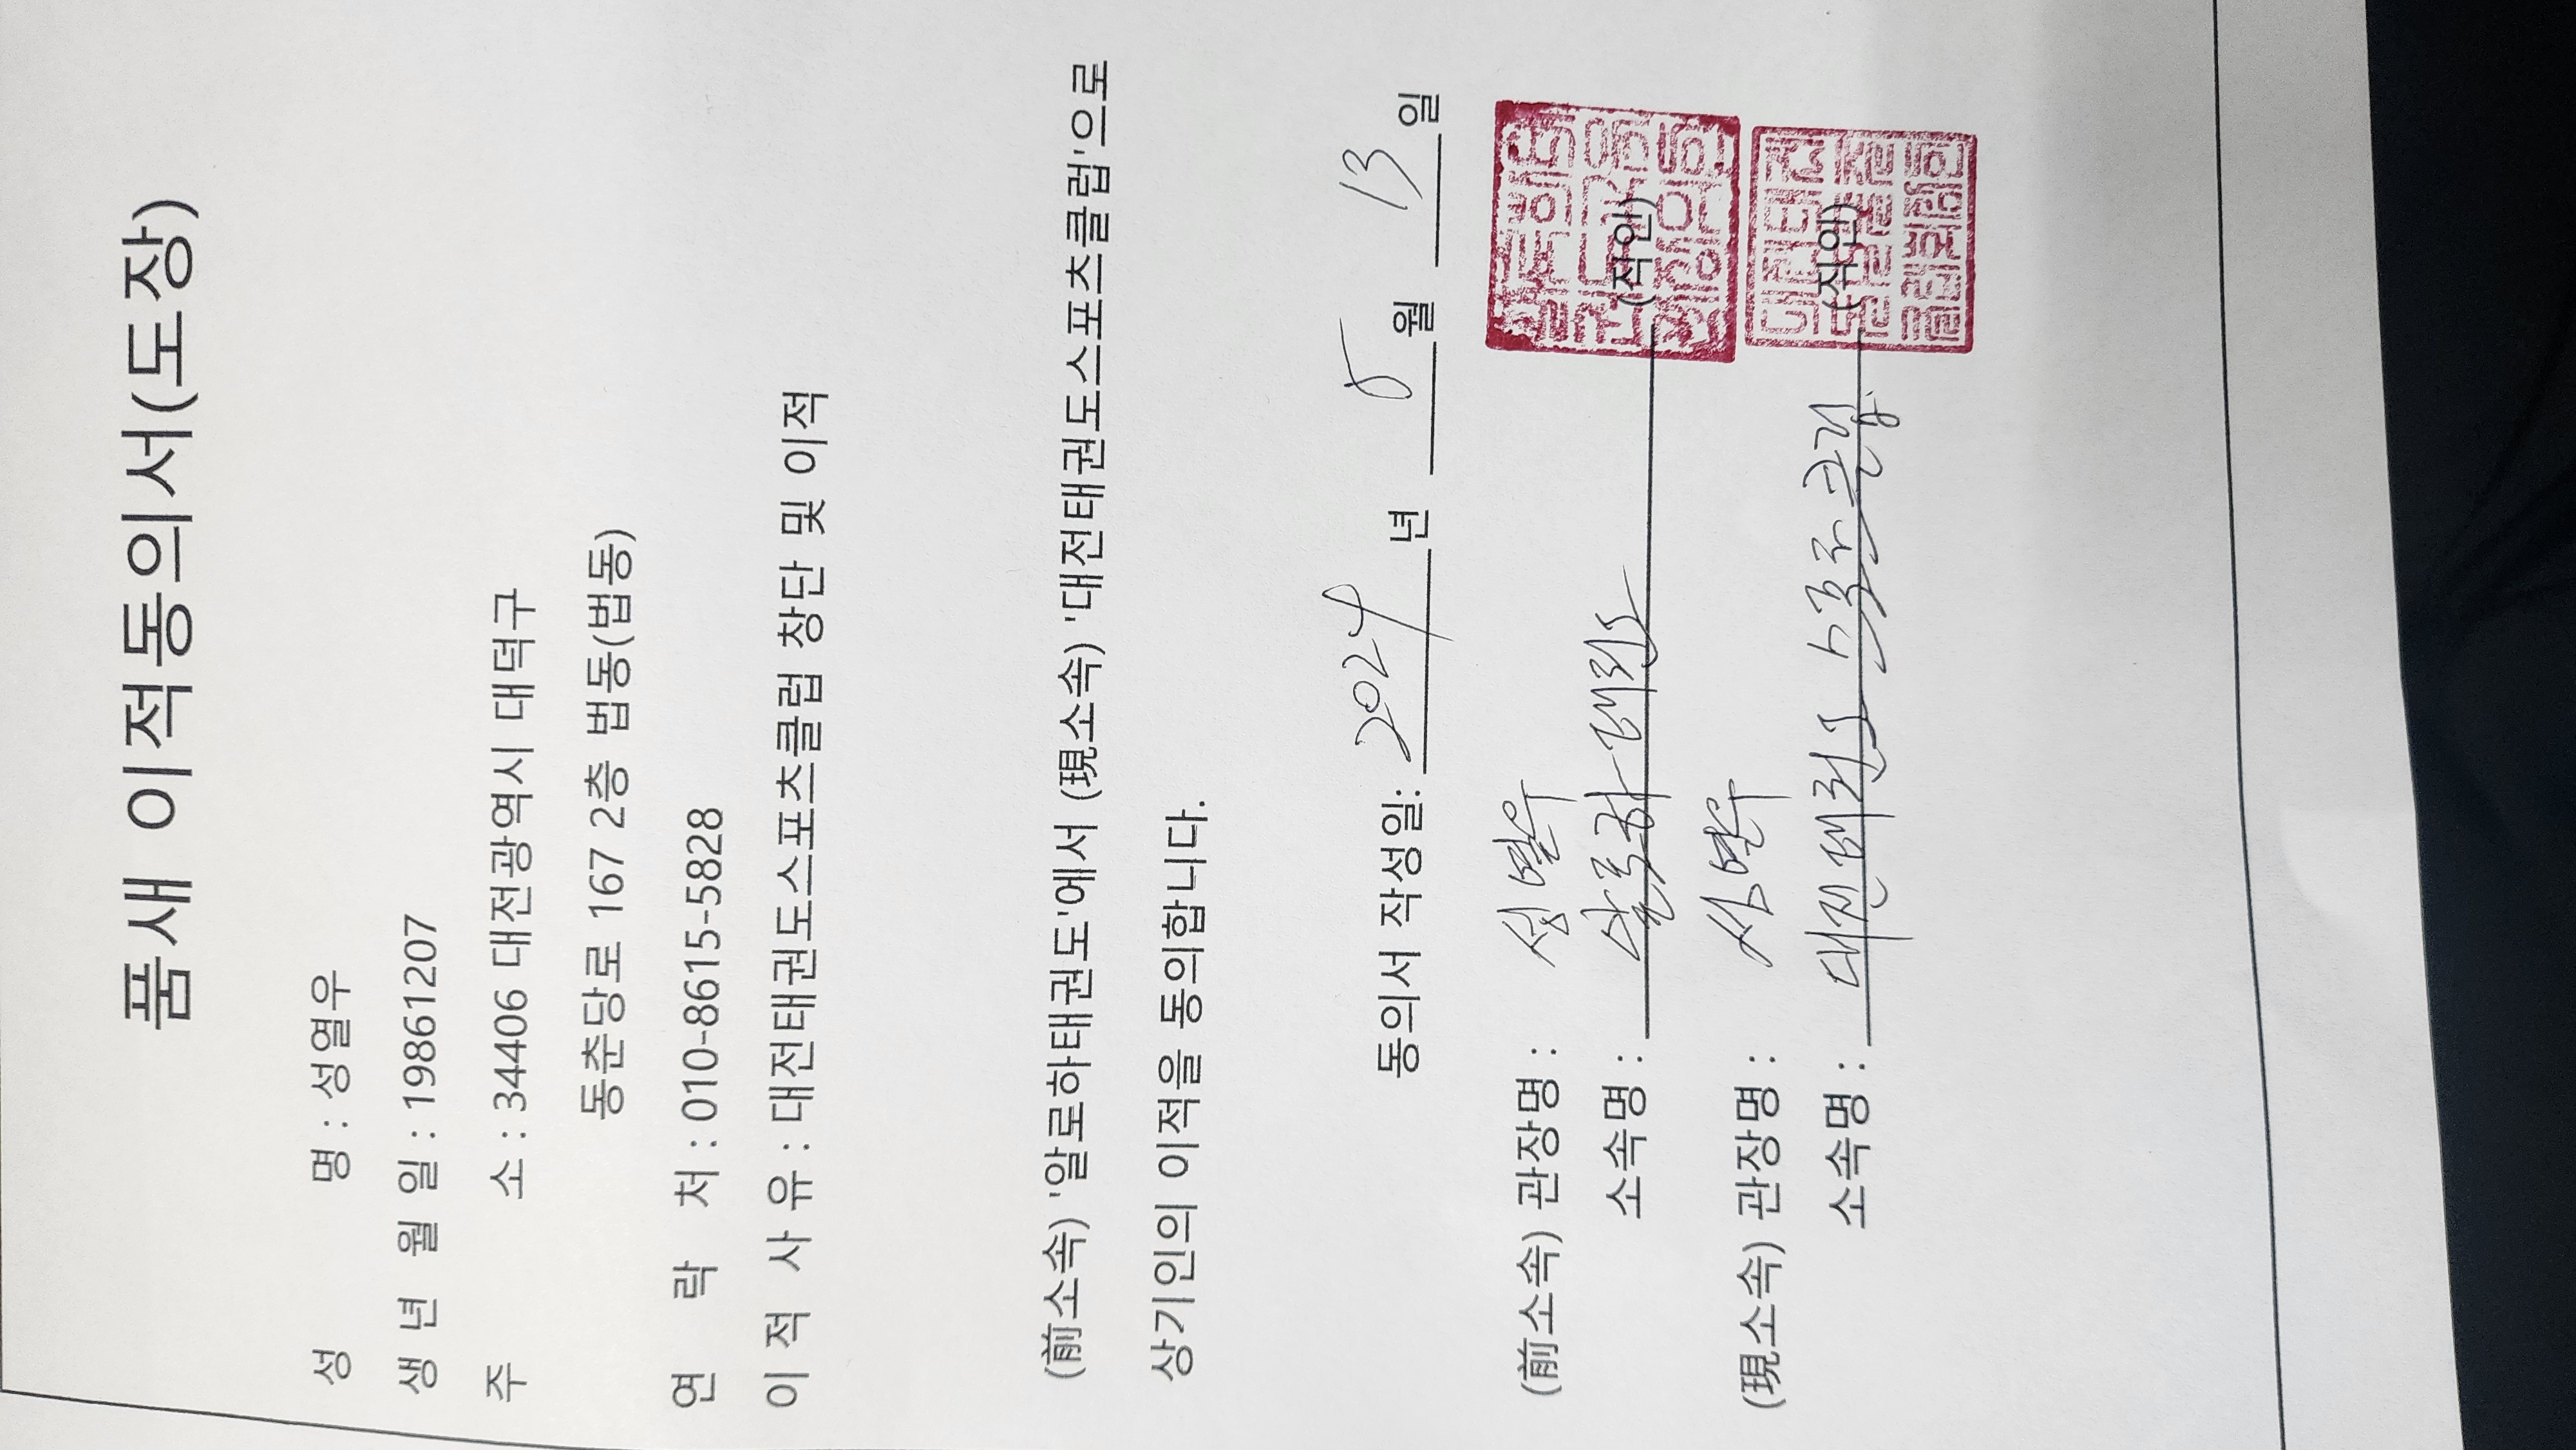 품새 이적동의서(도장)
성 명 : 성열우
생 년 월 일 : 19861207
주 소 : 34406 대전광역시 대덕구
동춘당로 167 2층 법동(법동)
연 락 처 : 010-8615-5828
이 적 사 유 : 대전태권도스포츠클럽 창단 및 이적
(前소속) '알로하태권도'에서 (現소속) '대전태권도스포츠클럽'으로
상기인의 이적을 동의합니다.
동의서 작성일: 2024 년 5 월 13 일
(前소속) 관장명 : 성열우
소속명 : 알로하 태권도 (직인)
(現소속) 관장명 : 성열우
소속명 : 대전태권도 스포츠클럽 (직인)